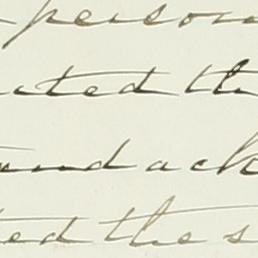 person
uted the
and ack
ted the s